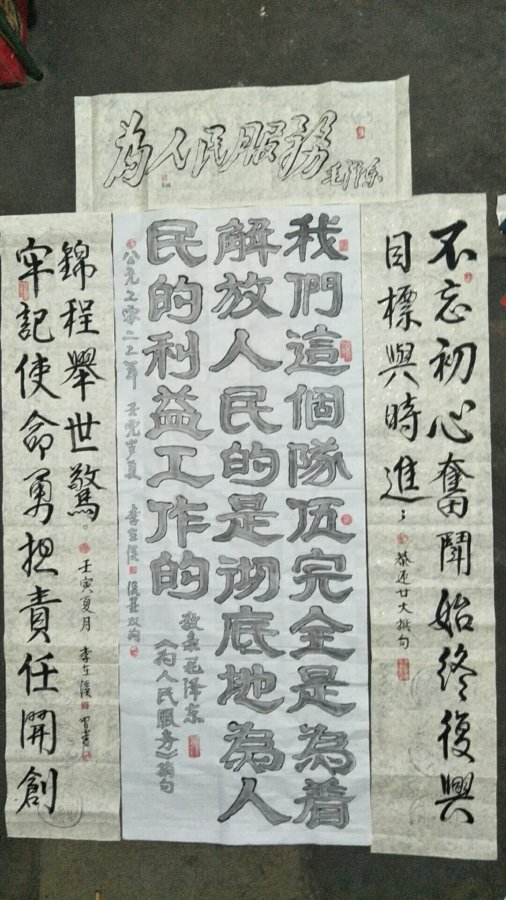 为人民服务
毛泽东
不忘初心奮鬥始终復興
目標與時進；
恭迎廿大撰句
我們這個隊伍完全是為着
解放人民的是彻底地為人
民的利益工作的
敬录毛泽东
《为人民服务》摘句
公元二零二二年 壬寅岁夏 李在溪
牢記使命勇担責任開創
錦程舉世驚。
壬寅夏月 李在溪